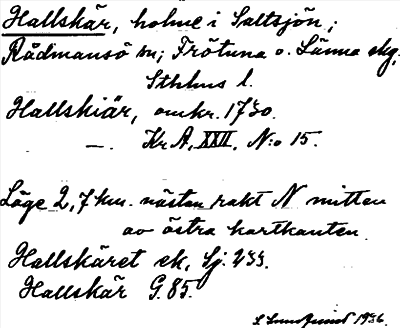 Hallskär, holme i Saltsjön;
Rådmansö sn; Frötuna o. Länna skg,
Sthlms l.
Hallskiär, omkr. 1730.
— Kr A, XXII, N:o 15.
Läge 2,7 km. nästan rakt N mitten
av östra kartkanten.
Hallskäret ek. Sj. 233.
Hallskär G. 85.
1936.